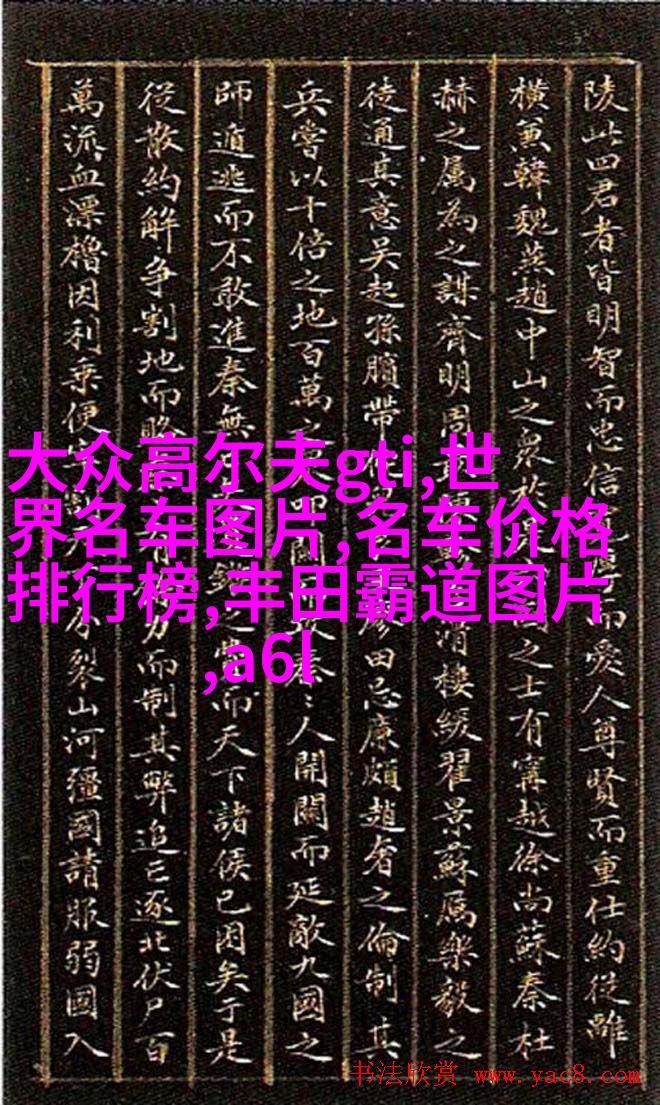 陵此四君者皆明智而忠信而愛人尊賢而重仕約從離
橫兼韓魏燕趙中山之衆於之士有甯越徐尚蘇秦杜
赫之屬為之謀齊明周滑樓緩翟景蘇厲樂毅之
徒通其意吳起孫臏帶田忌廉頗趙奢之倫制其
兵嘗以十倍之地百萬之秦〻人開關而延敵九國之
師遁逃而不敢進秦無而天下諸侯已困矣于是
從散約解爭割地而賂力而制其弊追亡逐北伏尸百
萬流血漂櫓因利乘便分裂山河疆國請服弱國入
大众高尔夫gti,世
界名车图片,名车价格
排行榜,丰田霸道图片
,a6l
书法欣赏 www.yac8.com